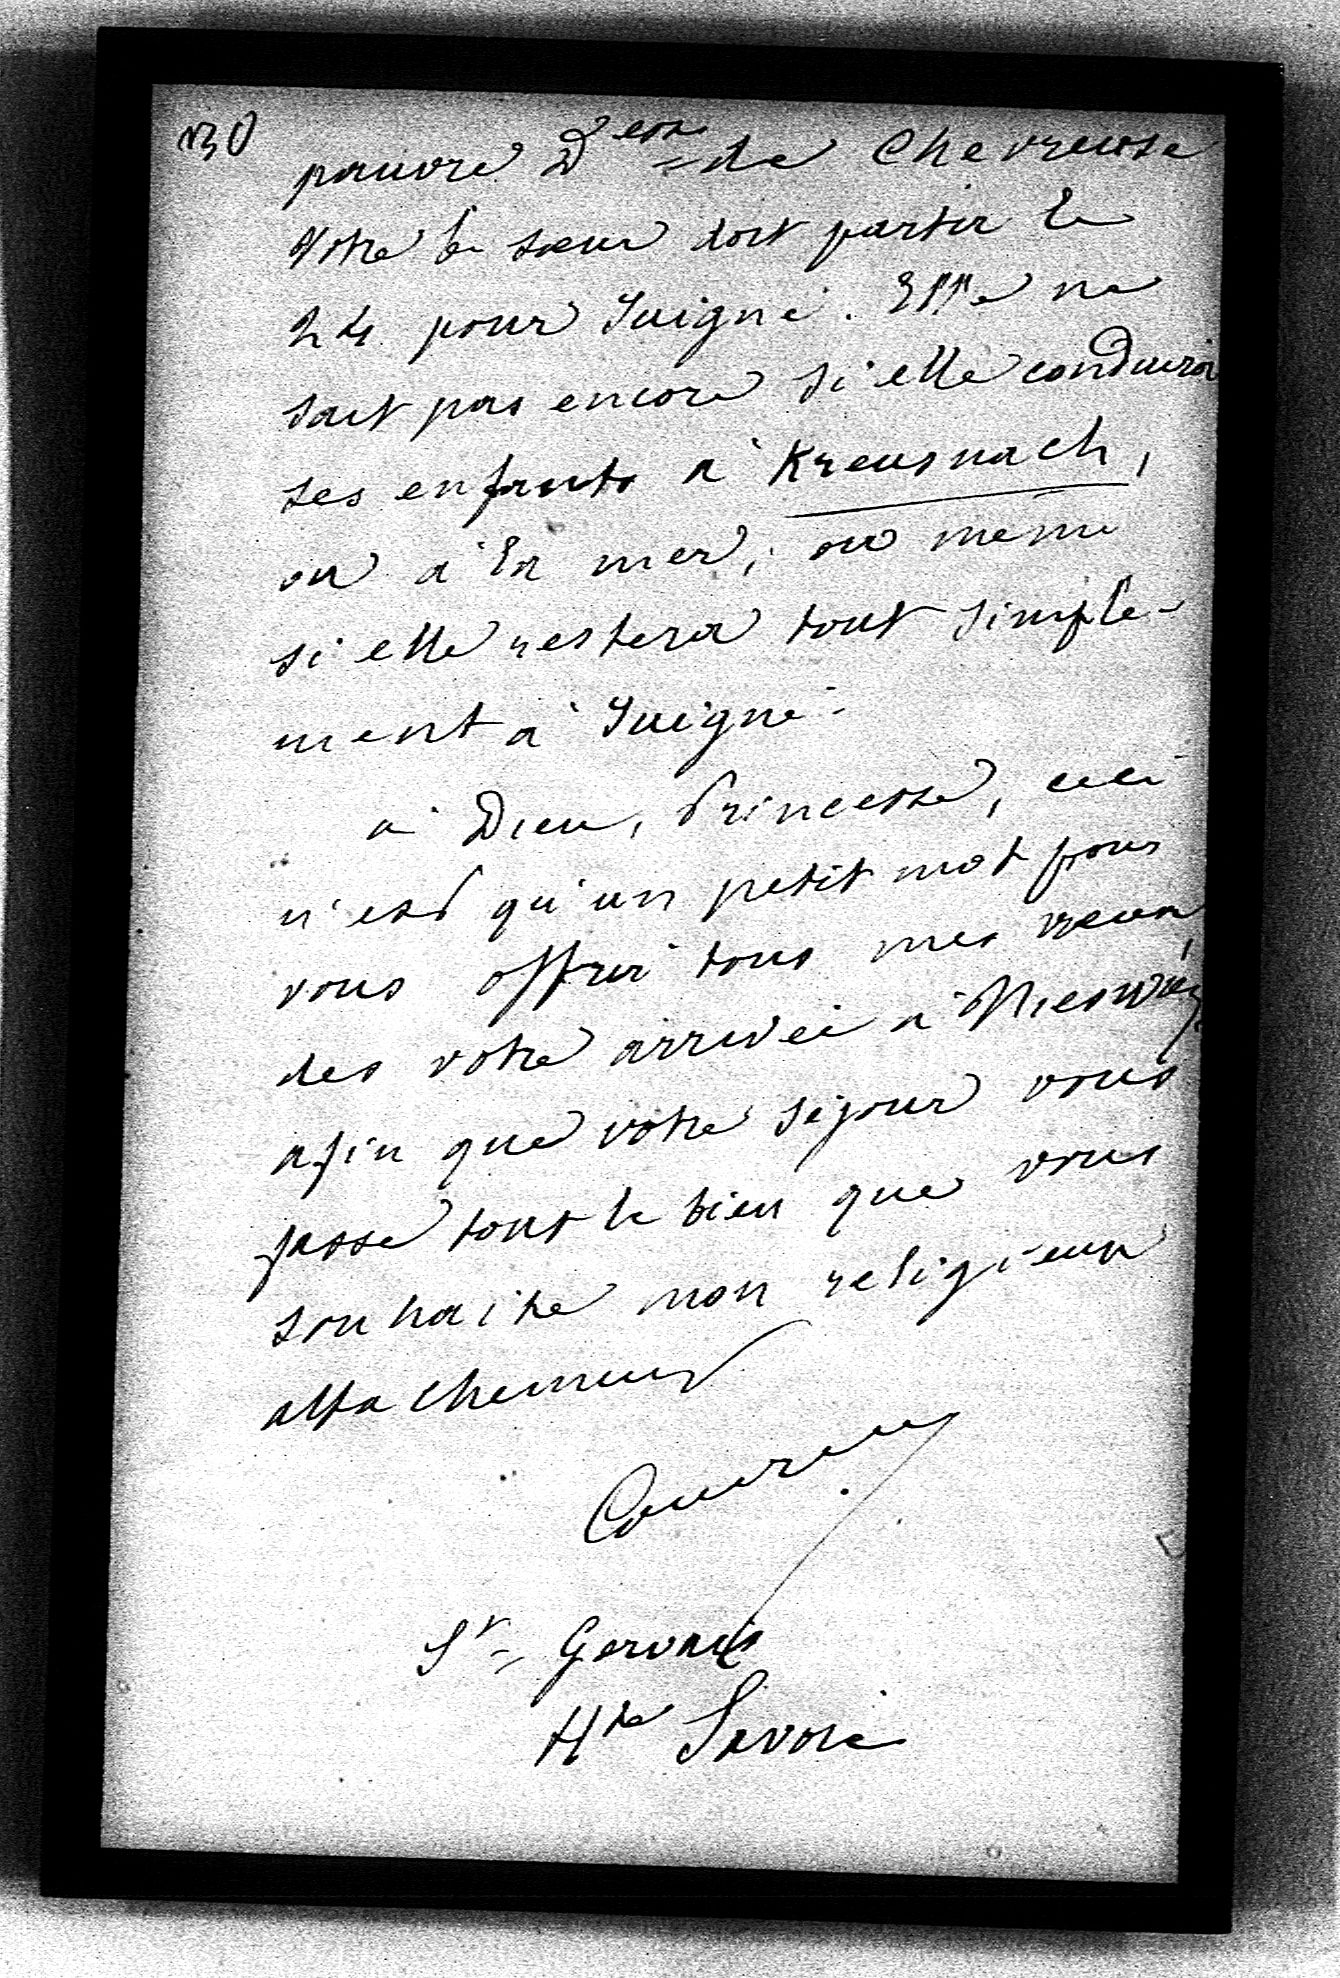 130
pauvre D<sup>esse</sup> de Chevreuse
Votre b. sœur doit partir le
24 pour Juigné. Elle ne
sait pas encore si elle conduira
ses enfants à Kreusnach,
ou à la mer, ou même
si elle restera tout simple-
ment à Juigné.
à Dieu, Princesse, ceci
n'est qu'un petit mot pour
vous offrir tous mes vœux,
des votre arrivée à
afin que votre séjour vous
fasse tout le bien que vous
souhaite mon religieux
attachement
St Gervais
Hte Savoie